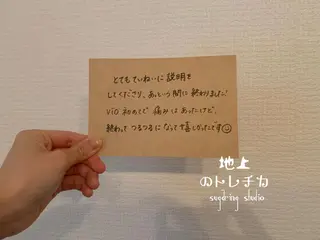 とてもていねいに説明を
してくださり、あっという間に終わりました！
VIO初めてで痛みはあったけど、
終わって つるつるになって嬉しかったです☺
地上
のトレチカ
sugaring studio